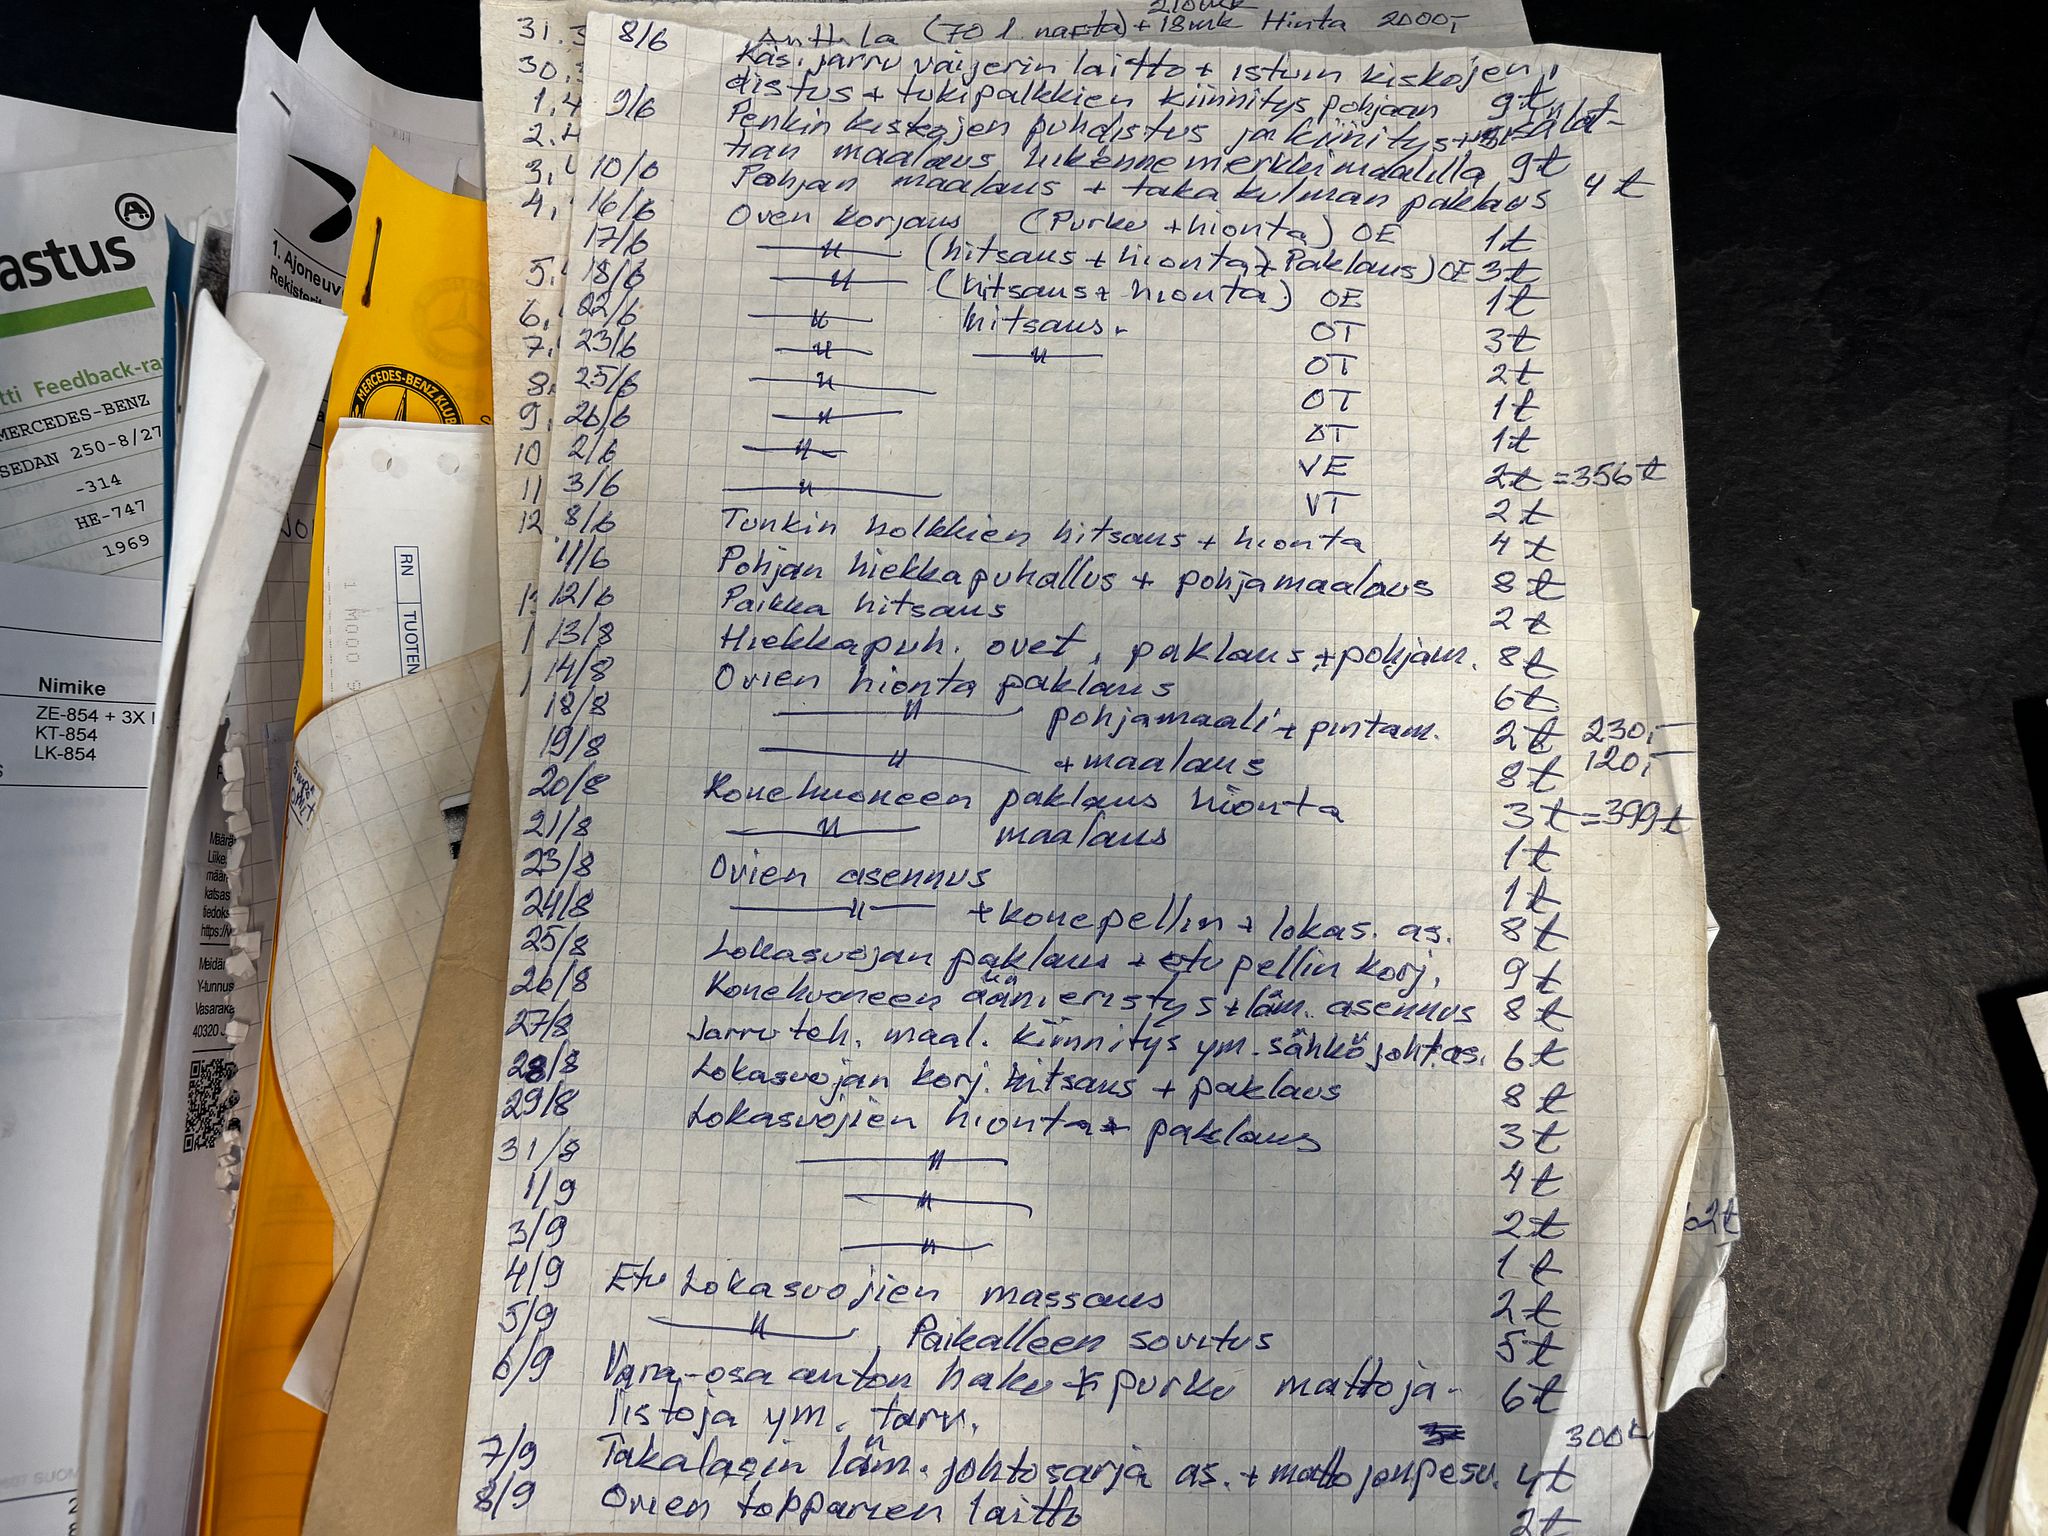 31.3 8/6 Anttila (70 l. nafta) + 18mk Hinta 2000,-
210mk
Käs. jarru vaijerin laitto + istuin kiskojen
30.
distus + tukipalkkien kiinnitys pohjaan 9t
1.4 9/6 Penkin kiskojen puhdistus ja kiinitys + sisälat-
2.4
tian maalaus liikennemerkkimaalilla 9t
3. 10/6 Pohjan maalaus + taka kulman paklaus 4t
4. 16/6 Oven korjaus (Purku + hionta) OE 1t
17/6 —"— (hitsaus + hionta + Paklaus) OE 3t
5. 18/6 —"— (hitsaus + hionta) OE 1t
6. 22/6 —"— hitsaus. OT 3t
7. 23/6 —"— —"— OT 2t
8. 25/6 —"— OT 1t
9. 26/6 —"— OT 1t
10 2/6 —"— VE 2t =356t
11 3/6 —"— VT 2t
12 8/6 Tunkin holkkien hitsaus + hionta 4t
11/6 Pohjan hiekkapuhallus + pohjamaalaus 8t
12/6 Paikka hitsaus 2t
13/8 Hiekkapuh. ovet, paklaus + pohjam. 8t
14/8 Ovien hionta paklaus 6t
18/8 —"— pohjamaali + pintam. 2t 230,-
19/8 —"— + maalaus 8t 120,-
20/8 Konehuoneen paklaus hionta 3t =399t
21/8 —"— maalaus 1t
23/8 Ovien asennus 1t
24/8 —"— + konepellin + lokas. as. 8t
25/8 Lokasuojan paklaus + etupellin korj. 9t
26/8 Konehuoneen äänieristys + läm. asennus 8t
27/8 Jarruteh. maal. kiinnitys ym. sähköjoht.as. 6t
28/8 Lokasuojan korj. hitsaus + paklaus 8t
29/8 Lokasuojien hionta + paklaus 3t
31/8 —"— 4t
1/9 —"— 2t
3/9 —"— 1t
4/9 Etu Lokasuojien massaus 2t
5/9 —"— Paikalleen sovitus 5t
6/9 Vara-osa auton haku + purku mattoja- 6t
listoja ym. tarv.
300
7/9 Takalasin läm. johtosarja as. + mattojen pesu. 4t
8/9 Ovien topparien laitto 2t
A
astus
tti Feedback-ra
MERCEDES-BENZ
SEDAN 250-8/27
-314
HE-747
1969
Nimike
ZE-854 + 3X
KT-854
LK-854
1. Ajoneuv
Rekisterit
MERCEDES-BENZ KLUB
RN
TUOTEN
Määrä
Liike
määr
katsas
tiedoks
https://
Meidär
Y-tunnus
Vasaraka
40320 J